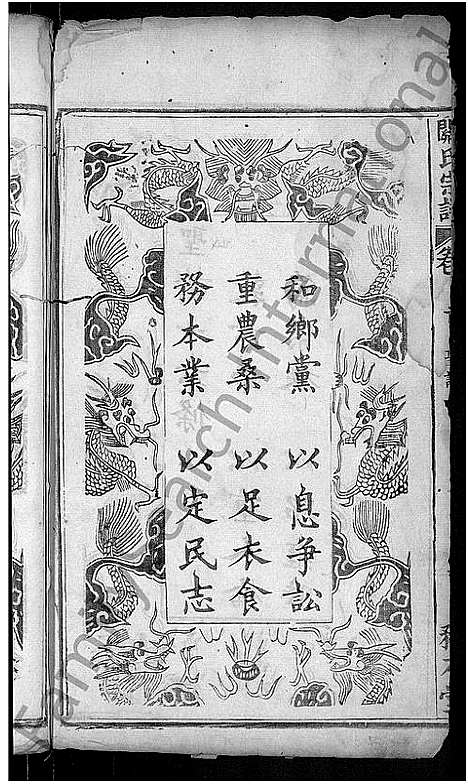 關氏宗譜
卷
和鄉黨 以息争訟
重農桑 以足衣食
務本業 以定民志
FamilySearch International